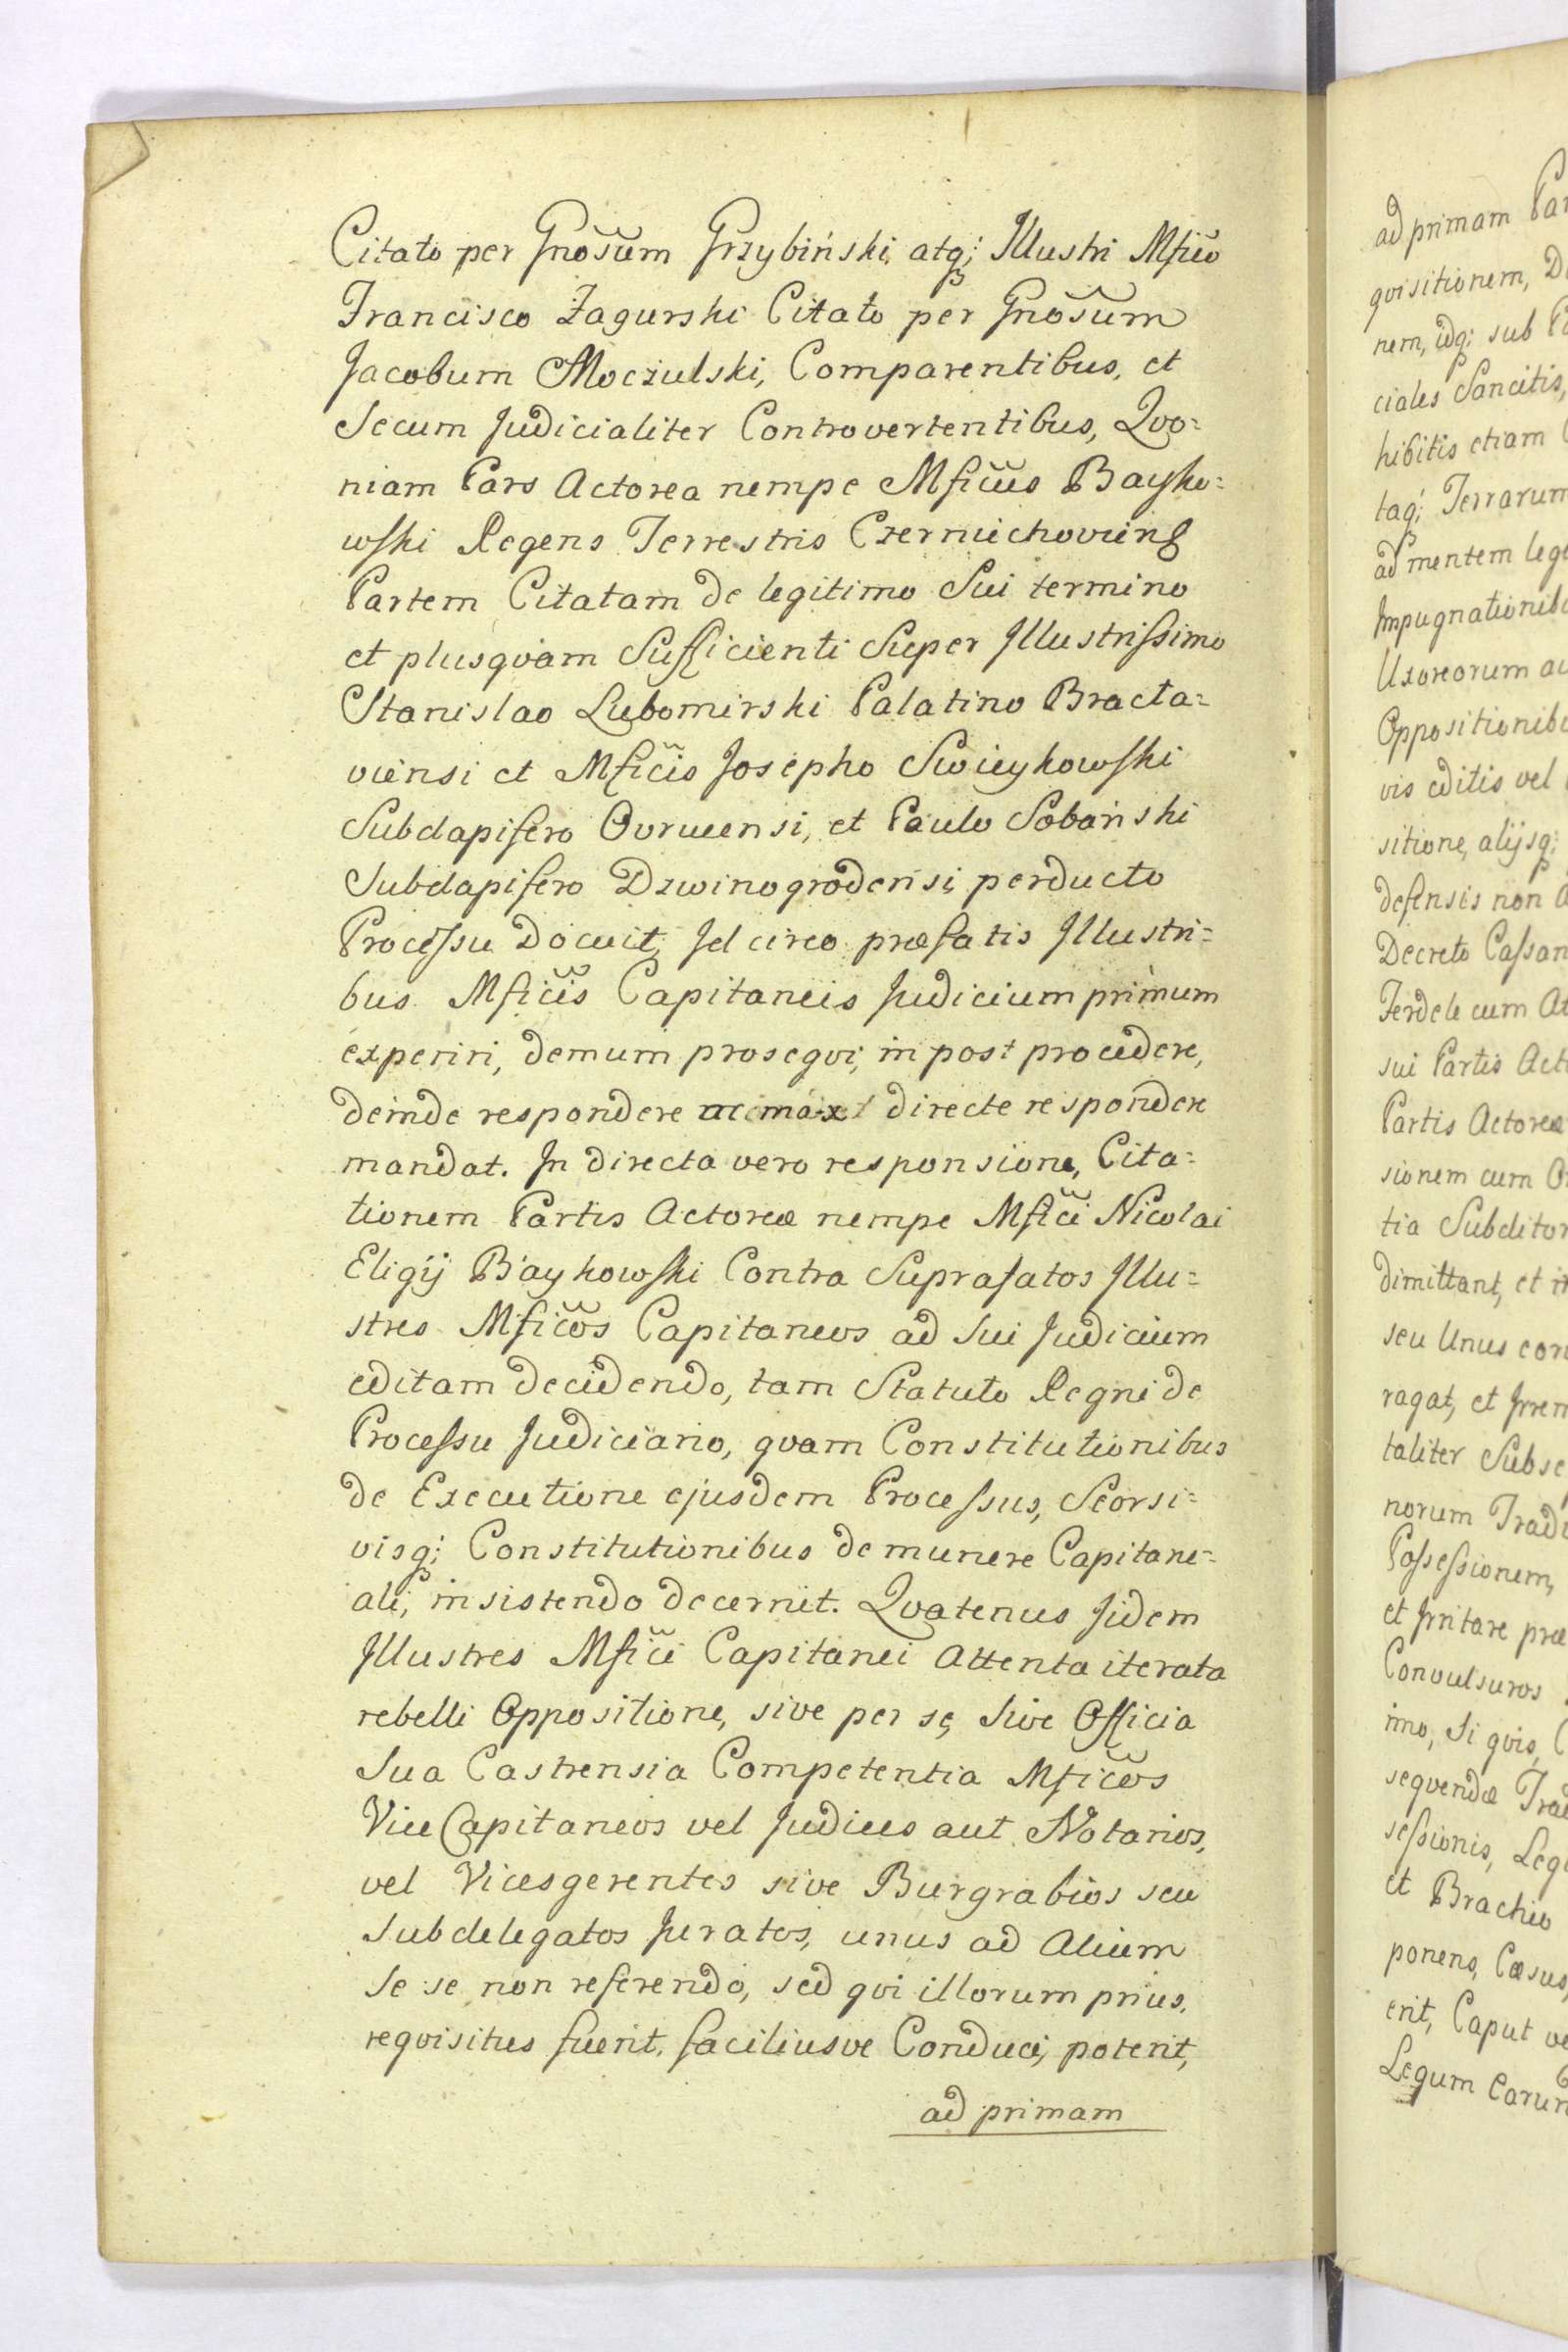 Citato per Gnosum Grzybiński, atq; Illustri Mfico
Francisco Zagurski Citato per Gnosum
Jacobum Moczulski, Comparentibus, et
Secum Judicialiter Controvertentibus, Qvo=
niam Pars Actorea nempe Mficus Bayko=
wski Regens Terrestris Czerniechoviens
Partem Citatam de legitimo Sui termino
et plusqvam Sufficienti Super Illustrissimo
Stanislao Lubomirski Palatino Bracta=
viensi et Mficis Josepho Swieykowski
Subdapifero Ovrucensi, et Paulo Sobański
Subdapifero Dzwinogrodensi, perducto
Processu Docuit, Id circo præfatis Illustri=
bus Mficis Capitaneis Judicium primum
experiri, demum prosegvi, in post procedere,
deinde respondere directe respondere
mandat. In directa vero responsione, Cita=
tionem Partis Actoreæ nempe Mfici Nicolai
Eligij Baykowski Contra Suprafatos Illu=
stres Mficos Capitaneos ad Sui Judicium
editam decidendo, tam Statuto Regni de
Processu Judiciario, qvam Constitutionibus
de Executione ejusdem Processus, Seorsi=
visq; Constitutionibus de munere Capitane=
ali, insistendo decernit. Qvatenus Iidem
Illustres Mfici Capitanei Attenta iterata
rebelli Oppositione, sive per se, Sive Officia
Sua Castrensia Competentia Mficos
Vice Capitaneos vel Judices aut Notarios,
vel Vicesgerentes sive Burgrabios seu
Subdelegatos Juratos, unus ad Alium
Se se non referendo, sed qvi illorum prius
reqvisitus fuerit, faciliusve Conduci, poterit,
ad primam
ad primam Par
qvisitionem, D
nem, idq; sub P
ciales Sancitis,
hibitis etiam
taq; Terrarum
ad mentem lege
Impugnationib
Uxoreorum a
Oppositionib
vis editis vel
sitione, alijsq;
defensis non
Decreto Cassan
Ferdele cum At
sui Partis Act
Partis Actoreæ
sionem cum O
tia Subditor
dimittant, et
seu Unus eor
ragat, et Irrem
taliter Subse
norum Tradi
Possessionem,
et Irritare præ
Convulsuros
imo, Si qvis, C
seqvendæ Trad
sessionis, Leg
et Brachio
ponens, Cæsus,
erit, Caput ve
Legum Earun